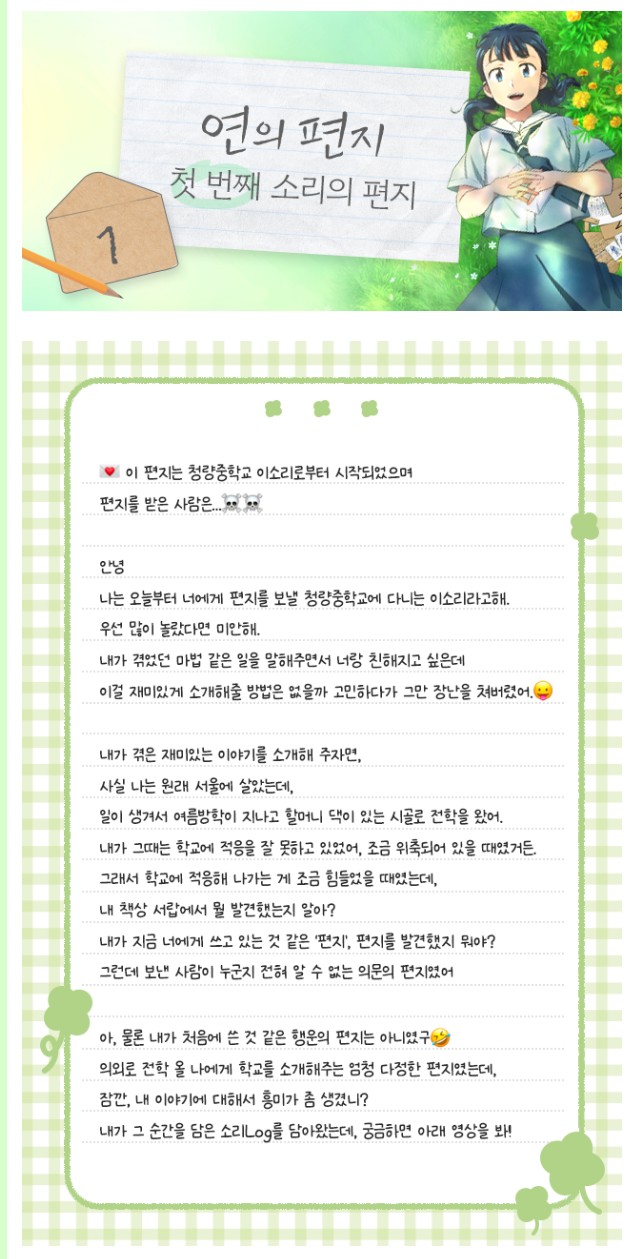 연의 편지
첫 번째 소리의 편지
1
💌 이 편지는 청량중학교 이소리로부터 시작되었으며
편지를 받은 사람은...☠️☠️
안녕
나는 오늘부터 너에게 편지를 보낼 청량중학교에 다니는 이소리라고해.
우선 많이 놀랐다면 미안해.
내가 겪었던 마법 같은 일을 말해주면서 너랑 친해지고 싶은데
이걸 재미있게 소개해줄 방법은 없을까 고민하다가 그만 장난을 쳐버렸어.😛
내가 겪은 재미있는 이야기를 소개해 주자면,
사실 나는 원래 서울에 살았는데,
일이 생겨서 여름방학이 지나고 할머니 댁이 있는 시골로 전학을 왔어.
내가 그때는 학교에 적응을 잘 못하고 있었어, 조금 위축되어 있을 때였거든.
그래서 학교에 적응해 나가는 게 조금 힘들었을 때였는데,
내 책상 서랍에서 뭘 발견했는지 알아?
내가 지금 너에게 쓰고 있는 것 같은 '편지', 편지를 발견했지 뭐야?
그런데 보낸 사람이 누군지 전혀 알 수 없는 의문의 편지였어
아, 물론 내가 처음에 쓴 것 같은 행운의 편지는 아니였구🤣
의외로 전학 올 나에게 학교를 소개해주는 엄청 다정한 편지였는데,
잠깐, 내 이야기에 대해서 흥미가 좀 생겼니?
내가 그 순간을 담은 소리Log를 담아왔는데, 궁금하면 아래 영상을 봐!